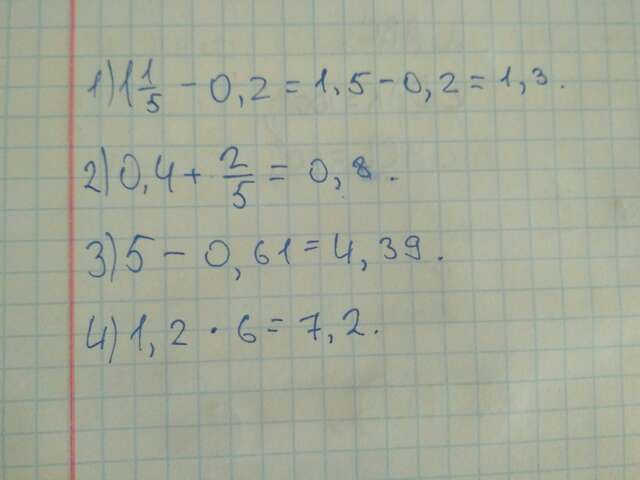 1) 1 1/5 - 0,2 = 1,5 - 0,2 = 1,3.
2) 0,4 + 2/5 = 0,8.
3) 5 - 0,61 = 4,39.
4) 1,2 · 6 = 7,2.